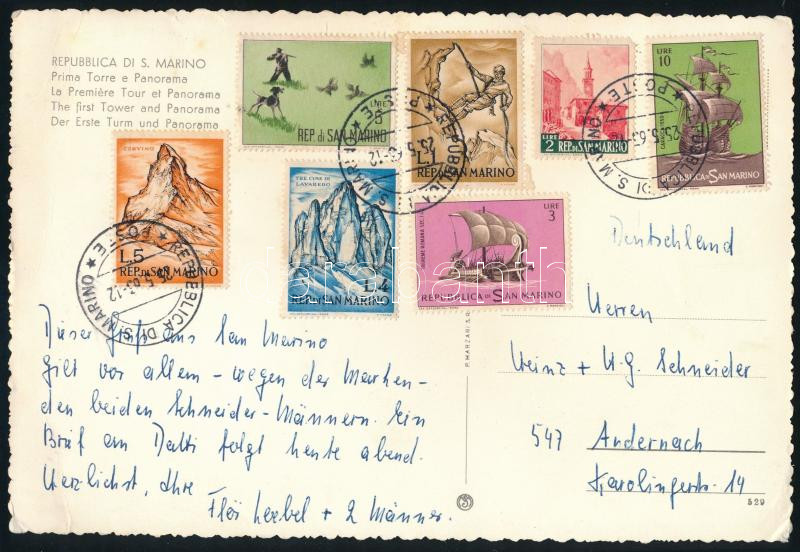 REPUBBLICA DI S. MARINO
Prima Torre e Panorama
La Première Tour et Panorama
The first Tower and Panorama
Der Erste Turm und Panorama
LIRE
REP. di SAN MARINO
L.1
REP. di SAN MARINO
LIRE 2
REP. di SAN MARINO
LIRE 10
REPUBBLICA DI SAN MARINO
CERVINO
L.5
REP. di SAN MARINO
TRE CIME DI LAVAREDO
L.4
REP. di SAN MARINO
LIRE 3
REPUBBLICA DI SAN MARINO
REPUBBLICA DI S. MARINO
POSTE
25.5.63-12
REPUBBLICA DI S. MARINO
POSTE
25.5.63-12
REPUBBLICA DI S. MARINO
POSTE
25.5.63-12
Deutschland
Dieser Gruß aus San Marino
gilt vor allem – wegen der Marken –
den beiden Schneider-Männern. Ein
Brief an Datti folgt heute abend.
Herzlichst, Ihre
+ 2 Männer.
Herren
Heinz + H.G. Schneider
547 Andernach
Karolingerstr. 14
P. MARZARI S.R.
529